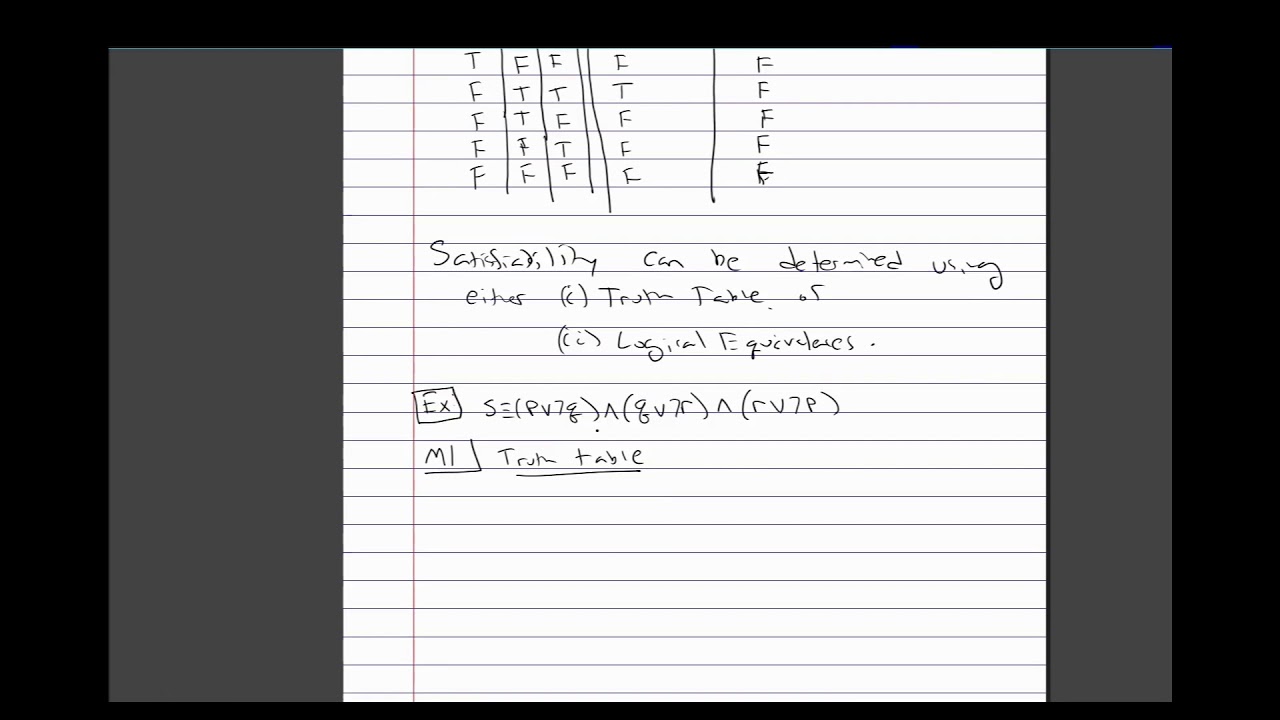 T F F F F
F T T T F
F T F F F
F F T F F
F F F F F
Satisfiability can be determined using
either (i) Truth Table or
(ii) Logical Equivalences.
Ex S≡(p∨¬q)∧(q∨¬r)∧(r∨¬p)
M1 Truth table